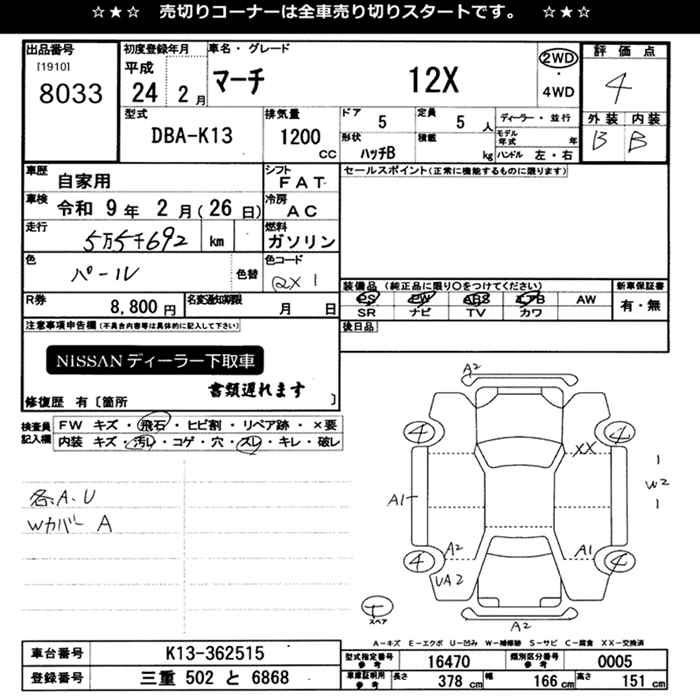 ☆★☆ 売切りコーナーは全車売り切りスタートです。 ☆★☆
出品番号
[1910]
8033
初度登録年月
平成
24 2月
車名・グレード
マーチ 12X
2WD
・
4WD
評価点
4
外装 内装
B B
型式
DBA-K13
排気量
1200 CC
ドア 5
定員 5 人
形状 ハッチB
積載 kg
ディーラー・並行
モデル年式 年
ハンドル 左・右
車歴 自家用
シフト FAT
車検 令和 9年 2月(26日)
冷房 AC
走行 5万5千692 km
燃料 ガソリン
色 パール 色替
色コード QX1
R券 8,800円
名変通知期限 月 日
セールスポイント(正常に機能するものに限ります)
装備品(純正品に限り○をつけてください)
PS PW ABS エアB AW
SR ナビ TV カワ
新車保証書
有・無
後日品
注意事項申告欄(不具合内容等は具体的に記入して下さい)
NISSANディーラー下取車
書類遅れます
修復歴 有〔箇所 〕
検査員記入欄
FW キズ・飛石・ヒビ割・リペア跡・×要
内装 キズ・汚レ・コゲ・穴・スレ・キレ・破レ
各A.U
Wカバー A
A2
4
4
XX
A1
W2
A2
A1
4
4
UA2
T
スペア
A2
A-キズ E-エクボ U-凹み W-補修跡 S-サビ C-腐食 XX-交換済
車台番号 K13-362515
登録番号 三重 502 と 6868
型式指定番号参考 16470
類別区分番号参考 0005
車庫証明用参考 長さ 378 cm 幅 166 cm 高さ 151 cm